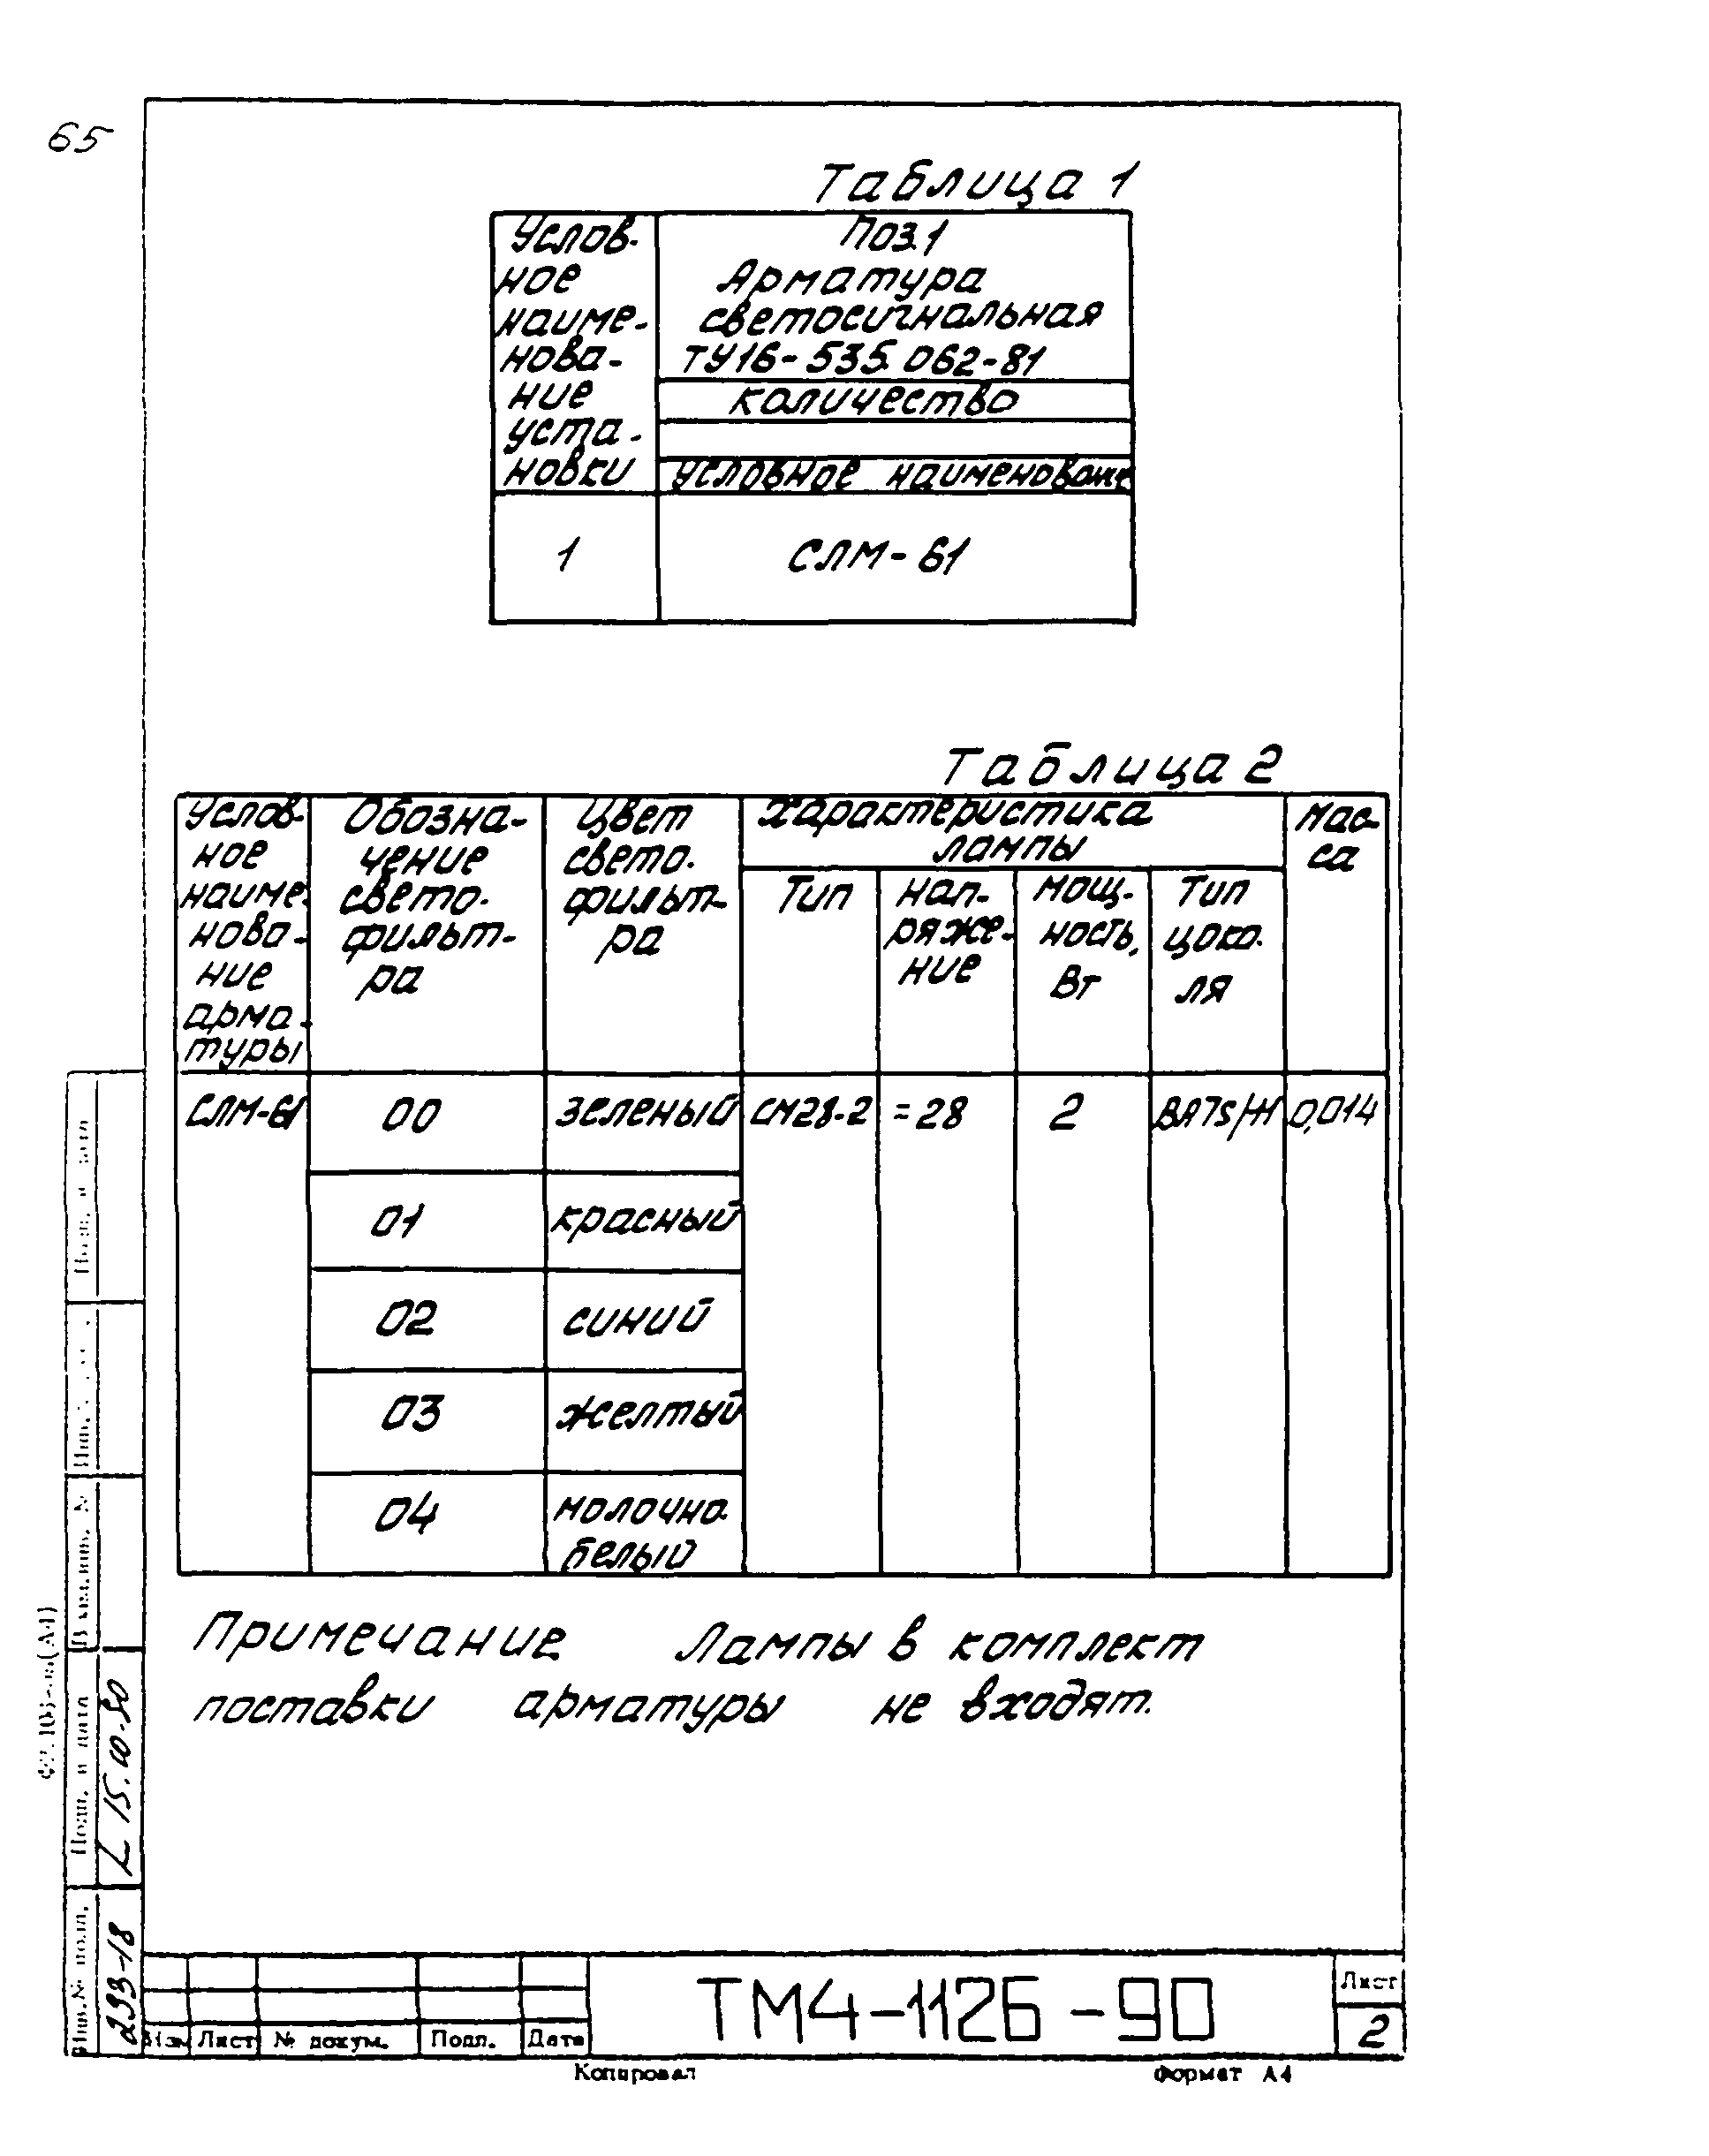 65
Таблица 1
Услов-
ное
наиме-
нова-
ние
уста-
новки
Поз.1
Арматура
светосигнальная
ТУ16-535.062-81
количество
условное
1
СЛМ-61
Таблица 2
Услов-
ное
наиме-
нова-
ние
арма-
туры
Обозна-
чение
свето-
фильт-
ра
Цвет
свето-
фильт-
ра
Характеристика
лампы
Тип
Нап-
ряже-
ние
Мощ-
ность,
Вт
Тип
цоко-
ля
Мас-
са
СЛМ-61
00
зеленый
СМ28-2
=28
2
0,014
01
красный
02
синий
03
желтый
04
молочно-
белый
Примечание Лампы в комплект
поставки арматуры не входят.
Подп. и дата
Взам.инв. №
Подп. и дата
Инв.№ подл.
293-18
Изм Лист № докум. Подп. Дата
ТМ4-1126-90
Лист
2
Копировал
Формат А4